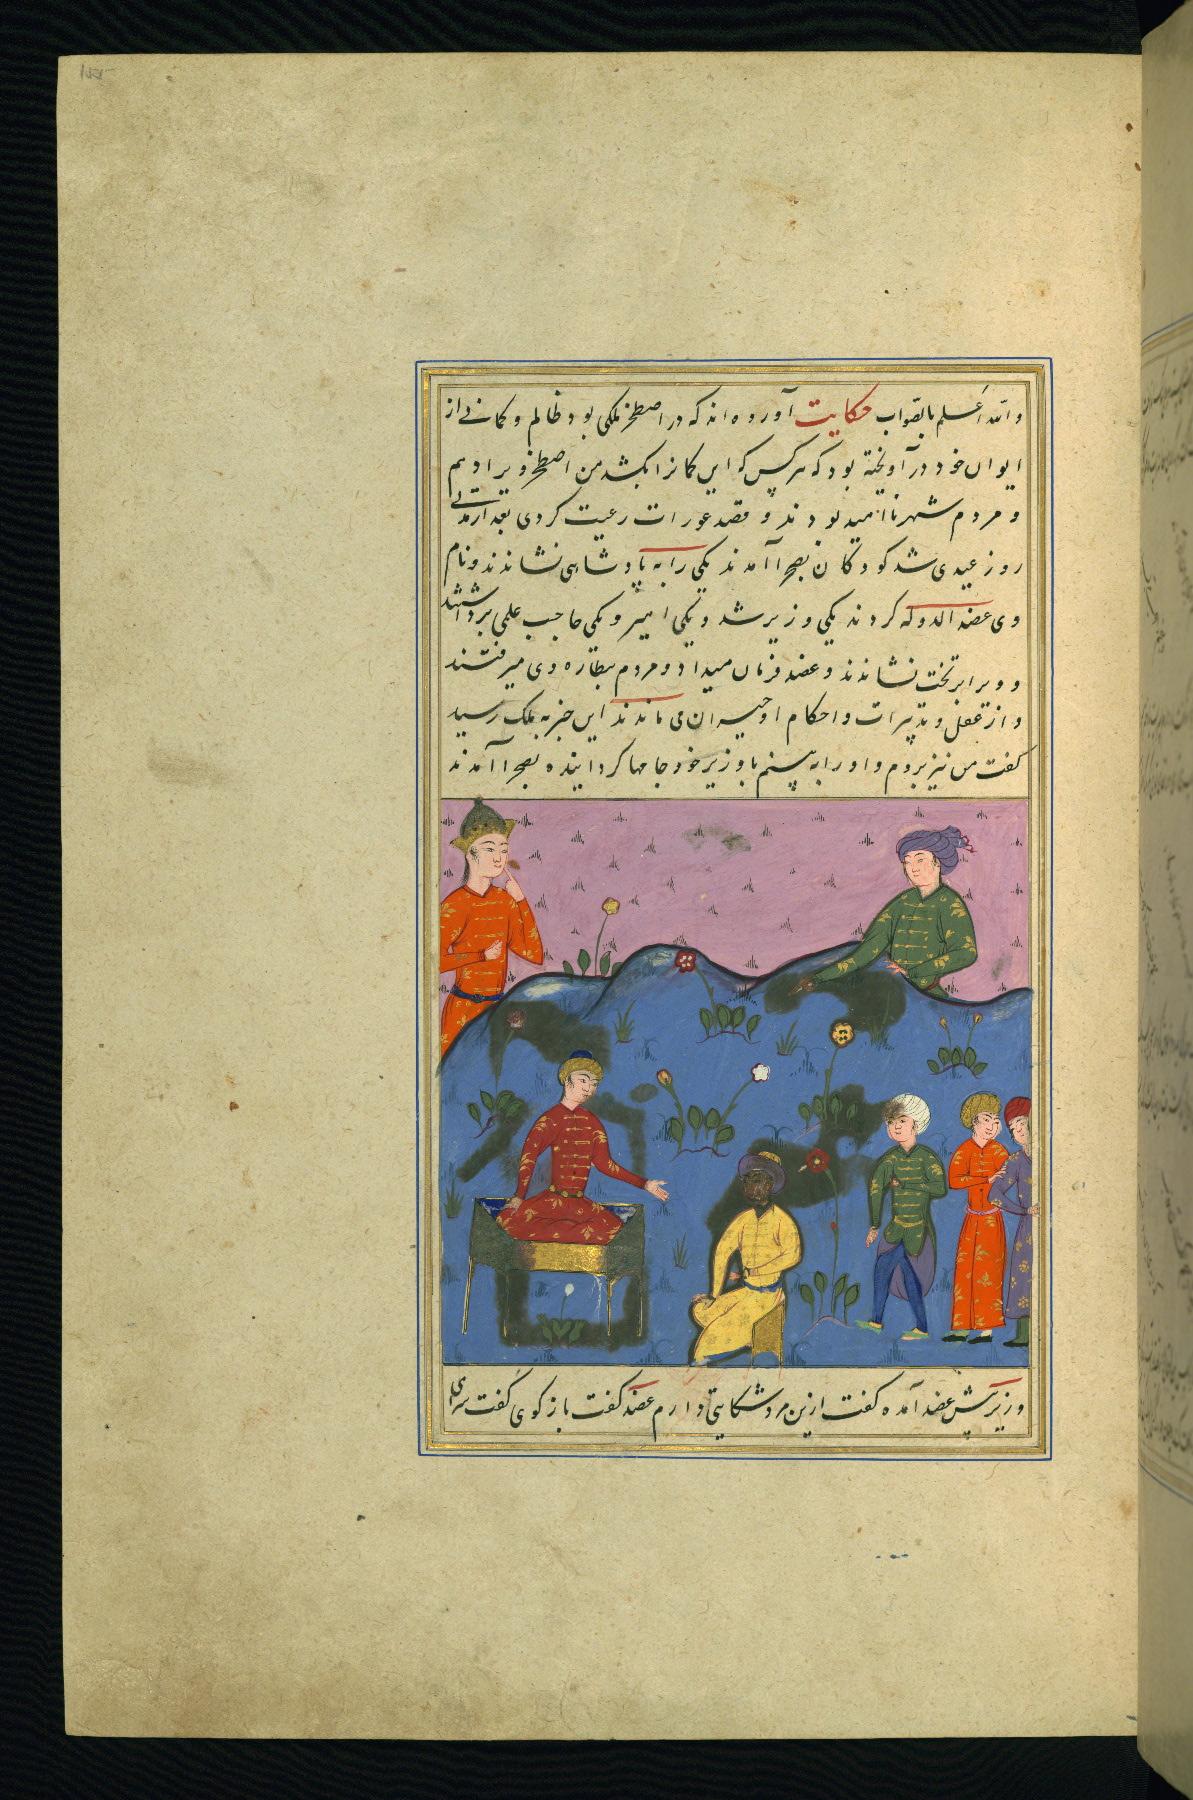 والله اعلم بالصواب حکایت آورده اند که در اصطخر ملکی بود ظالم و کمانی از
ایوان خود در آویخته بود که هر کس که این کمانرا بکشد من اصطخر ویرا دهم
و مردم شهر ناامید بودند و قصد عورات رعیت کردی بعد از مدتی
روز عیدی شد کودکان بصحرا آمدند یکی را به پادشاهی نشاندند و نام
وی عضد الدوله کردند یکی وزیر شد و یکی امیر و یکی حاجب علمی برداشتند
و ویرا بر تخت نشاندند و عضد فرمان میداد و مردم بنظاره وی میرفتند
و از عقل و تدبیرات و احکام او حیران می ماندند این خبر به ملک رسید
گفت من نیز بروم و او را به بینم با وزیر خود جامها گردانیده بصحرا آمدند
وزیر پیش عضد آمده گفت ازین مرد شکایتی دارم عضد گفت بازگوی گفت سرای